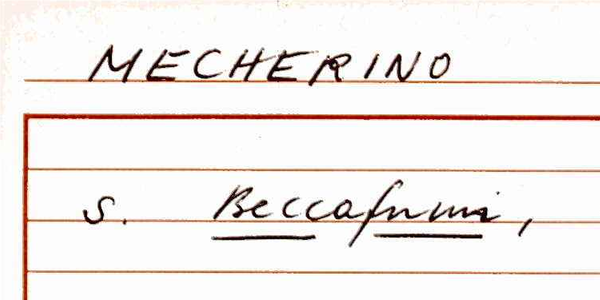 MECHERINO
s. Beccafumi,